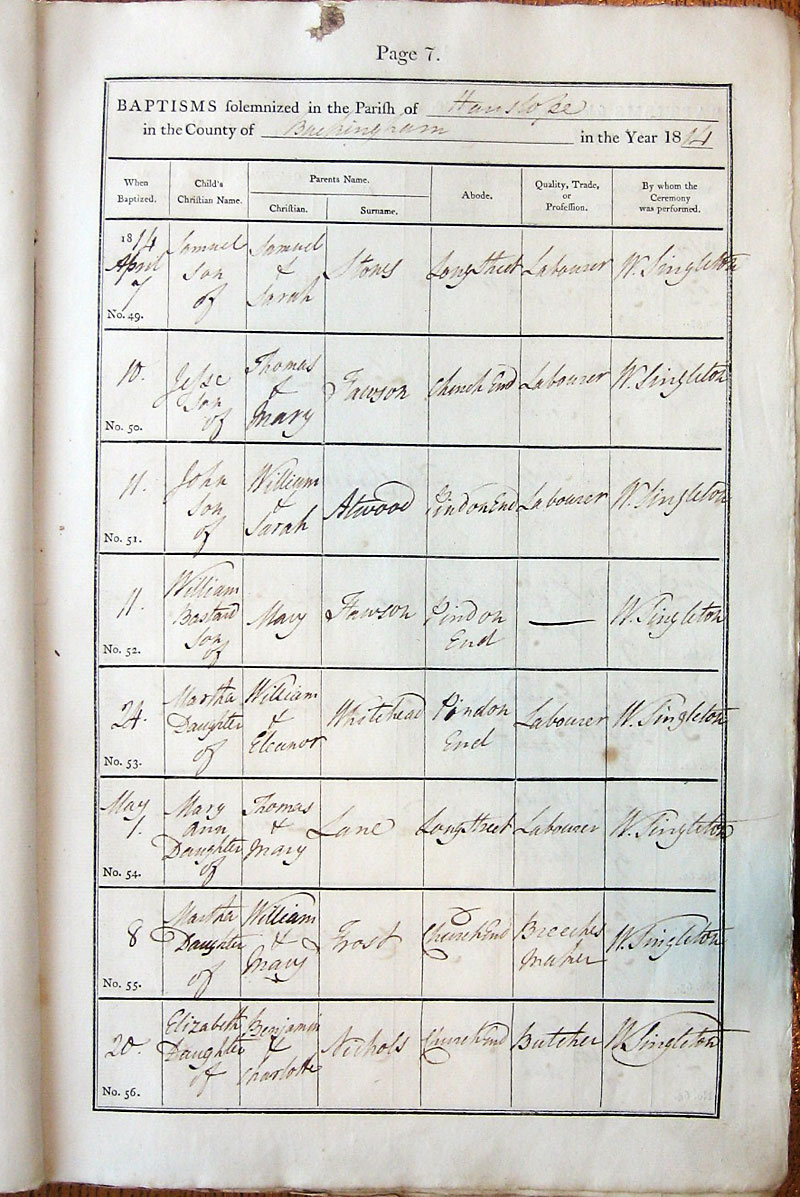 Page 7.
BAPTISMS solemnized in the Parish of Hanslope
in the County of Buckingham in the Year 1814
When Baptized.
Child's Christian Name.
Parents Name.
Christian.
Surname.
Abode.
Quality, Trade, or Profession.
By whom the Ceremony was performed.
1814
April
7
No. 49.
Samuel
Son
of
Samuel
&
Sarah
Stones
Longstreet
Labourer
W. Singleton
10.
No. 50.
Jesse
Son
of
Thomas
&
Mary
Fawson
Church End
Labourer
W. Singleton
11.
No. 51.
John
Son
of
William
&
Sarah
Atwood
Pindon End
Labourer
W. Singleton
11.
No. 52.
William
Bastard
Son
of
Mary
Fawson
Pindon
End
—
W. Singleton
24.
No. 53.
Martha
Daughter
of
William
&
Eleanor
Whitehead
Pindon
End
Labourer
W. Singleton
May
1.
No. 54.
Mary
Ann
Daughter
of
Thomas
&
Mary
Lane
Longstreet
Labourer
W. Singleton
8
No. 55.
Martha
Daughter
of
William
&
Mary
Frost
Church End
Breeches
Maker
W. Singleton
20.
No. 56.
Elizabeth
Daughter
of
Benjamin
&
Charlotte
Nichols
Church End
Butcher
W. Singleton